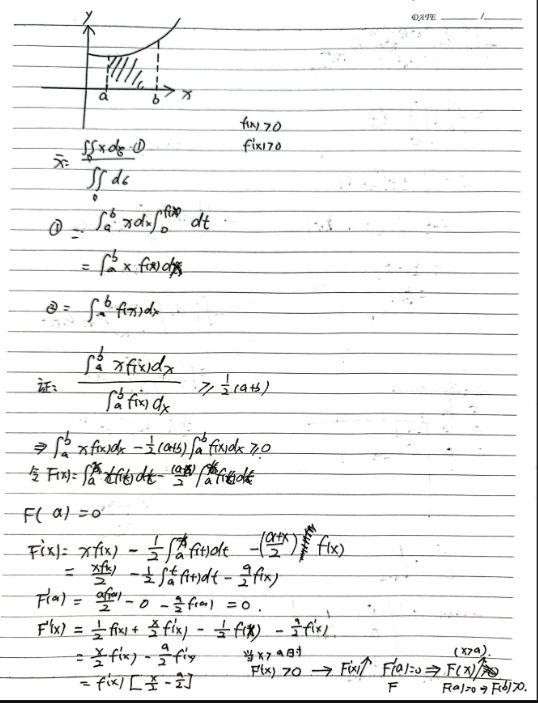 DATE /
y
a b x
f(x)>0
f'(x)>0
x̄= ∬_D x dσ ①
∬_D dσ
① = ∫_a^b x dx ∫_0^{f(x)} dt
= ∫_a^b x f(x) dx
② = ∫_a^b f(x) dx
证: ∫_a^b x f(x) dx / ∫_a^b f(x) dx ≥ 1/2 (a+b)
⇒ ∫_a^b x f(x) dx - 1/2 (a+b) ∫_a^b f(x) dx ≥ 0
令 F(x) = ∫_a^x t f(t) dt - (a+x)/2 ∫_a^x f(t) dt
F(a) = 0
F'(x) = x f(x) - 1/2 ∫_a^x f(t) dt - (a+x)/2 f(x)
= x f(x)/2 - 1/2 ∫_a^t f(t) dt - a/2 f(x)
F'(a) = a f(a)/2 - 0 - a/2 f(a) = 0.
F''(x) = 1/2 f(x) + x/2 f'(x) - 1/2 f(x) - a/2 f'(x)
= x/2 f'(x) - a/2 f'(x) 当 x>a 时 (x>a).
= f'(x) [x/2 - a/2] F''(x) >0 → F'(x)↑ F'(a)=0 ⇒ F(x)↑
F F(a)=0 ⇒ F(b)>0.